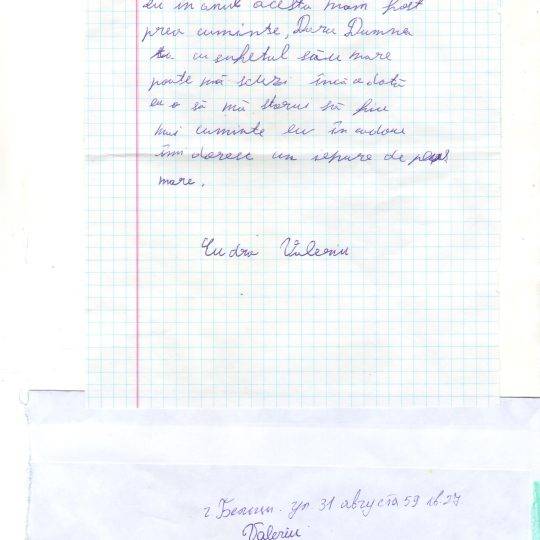 eu în anul acesta nam fost
prea cuminte, Daru Dumnea
ta cu sufletul său mare
poate mă scuzi încă odată
eu o să mă storui să fiu
mai cuminte eu în cadou
îmi doresc un iepure de
mare.
Valeriu
г Бельцы. ул 31 августа 59 кв. 27
Valeriu